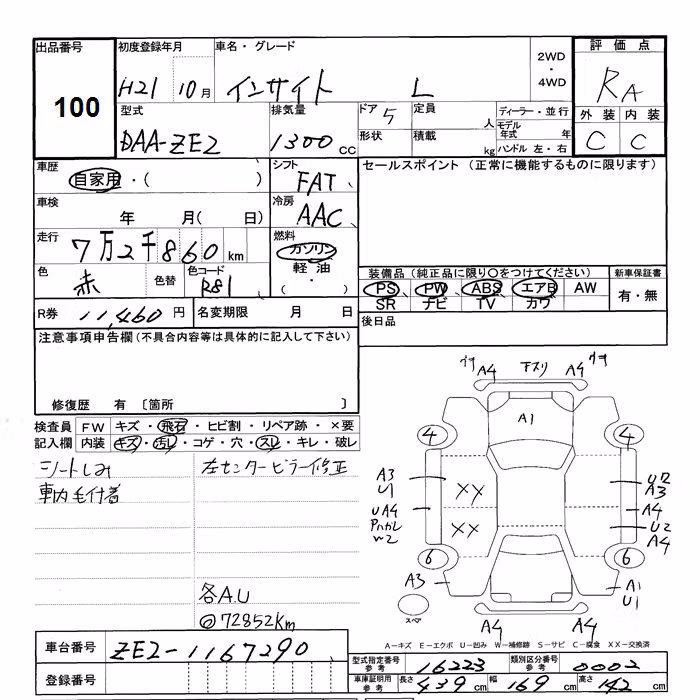 出品番号
100
初度登録年月
H21 10月
車名・グレード
インサイト L
2WD
・
4WD
評価点
RA
外装 内装
C C
型式
DAA-ZE2
排気量
1300 CC
ドア 5
形状
定員 人
積載 kg
ディーラー・並行
モデル年式 年
ハンドル 左・右
車歴
自家用・( )
シフト
FAT
車検
年 月( 日)
冷房
AAC
走行
7万2千860 km
燃料
ガソリン
軽油
・( )
色
赤
色替
色コード
R81
セールスポイント (正常に機能するものに限ります)
装備品 (純正品に限り○をつけてください)
新車保証書
PS PW ABS エアB AW
SR ナビ TV カワ
有・無
R券 11,460 円
名変期限 月 日
後日品
注意事項申告欄(不具合内容等は具体的に記入して下さい)
修復歴 有 〔箇所 〕
検査員 FW キズ・飛石・ヒビ割・リペア跡・×要
記入欄 内装 キズ・汚レ・コゲ・穴・スレ・キレ・破レ
シートしみ
車内毛付着
左センターピラー修正
各A.U
◎72852Km
ワサ A4 下スリ A4 ワサ
A1
4 4
A3
U1
UA4
XX
XX
U2
A3
A4
U2
A4
W2
6 6
A3
A1
U1
スペア
A4 A4
A-キズ E-エクボ U-凹み W-補修跡 S-サビ C-腐食 XX-交換済
車台番号 ZE2-1167290
登録番号
型式指定番号 参考 16223
類別区分番号 参考 0002
車庫証明用 参考 長さ 439 cm 幅 169 cm 高さ 142 cm